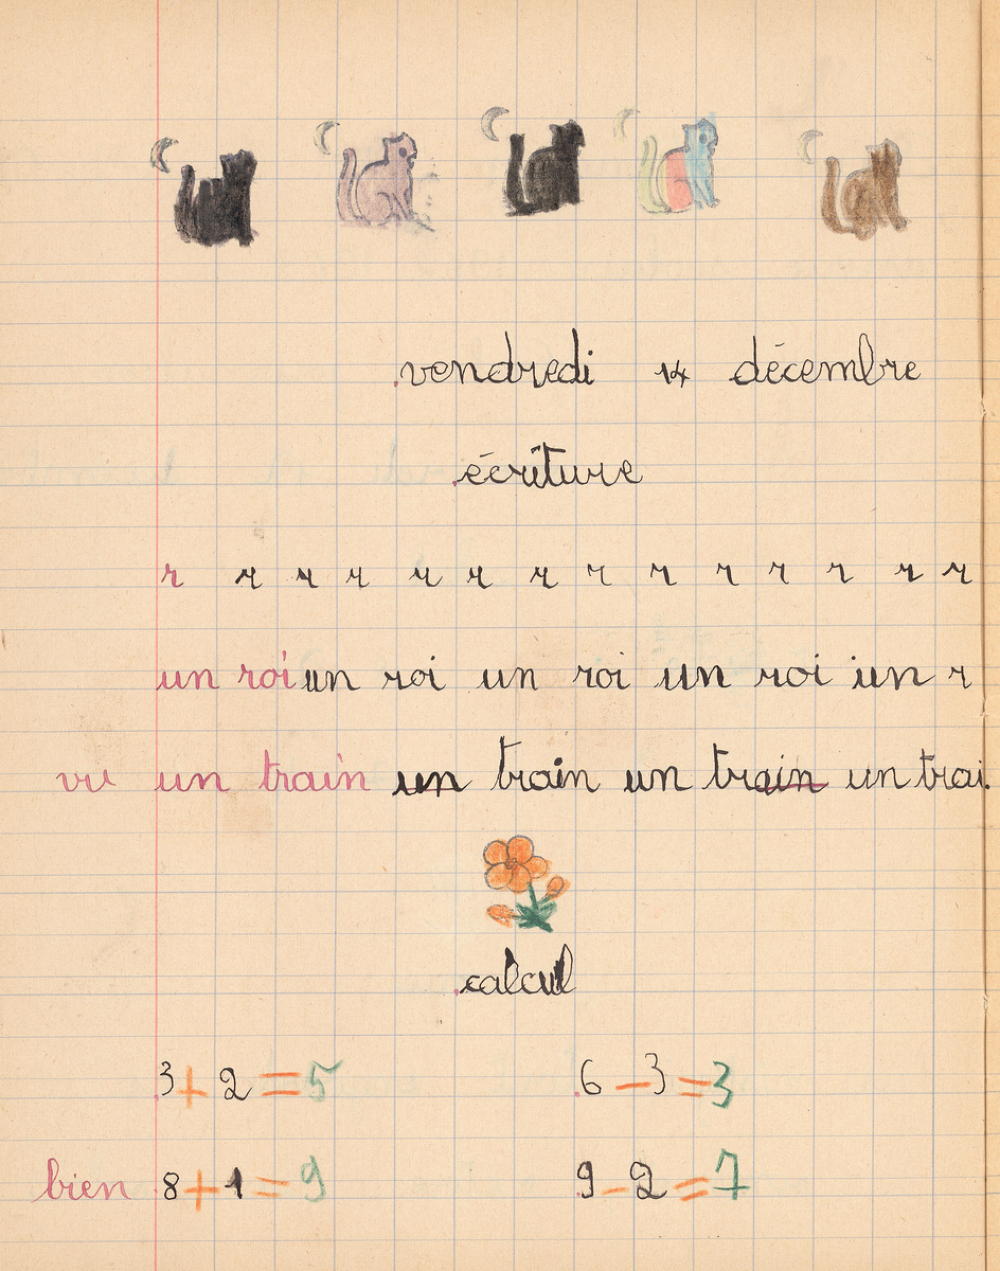 vendredi 14 décembre
écriture
r r r r r r r r r r r r r r
un roi un roi un roi un roi un r
vu un train un train un train un trai
calcul
3 + 2 = 5 6 - 3 = 3
bien 8 + 1 = 9 9 - 2 = 7